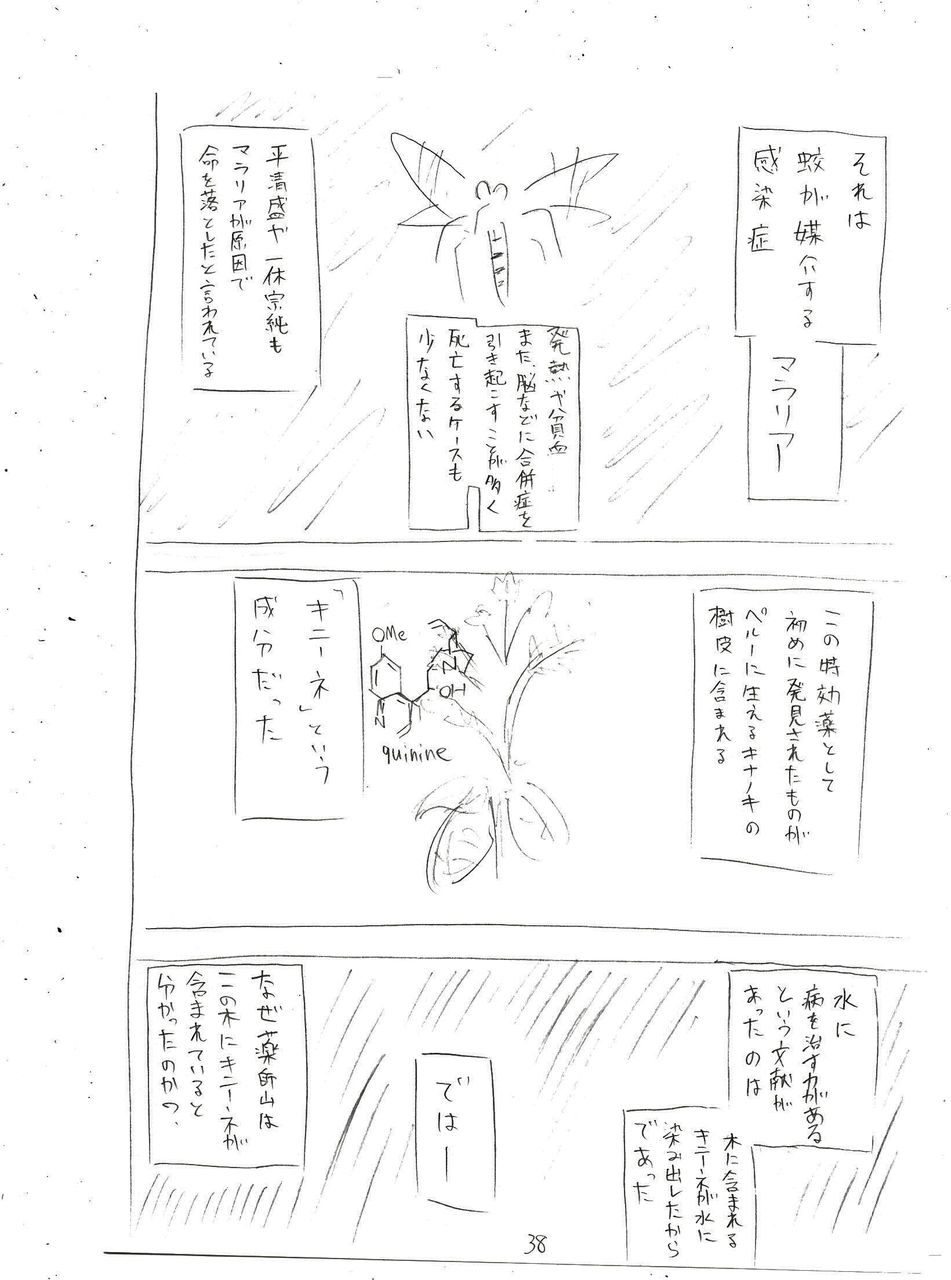 それは
蚊が媒介する
感染症
マラリアー
発熱や貧血
また、脳などに合併症を
引き起こすことが多く
死亡するケースも
少なくない
平清盛や一休宗純も
マラリアが原因で
命を落としたと言われている
この特効薬として
初めに発見されたものが
ペルーに生えるキナノキの
樹皮に含まれる
OMe
N
HO
N
quinine
「キニーネ」という
成分だった
水に
病を治す力がある
という文献が
あったのは
木に含まれる
キニーネが水に
染み出したから
であった
ではー
なぜ薬師山は
この木にキニーネが
含まれていると
分かったのか。
38